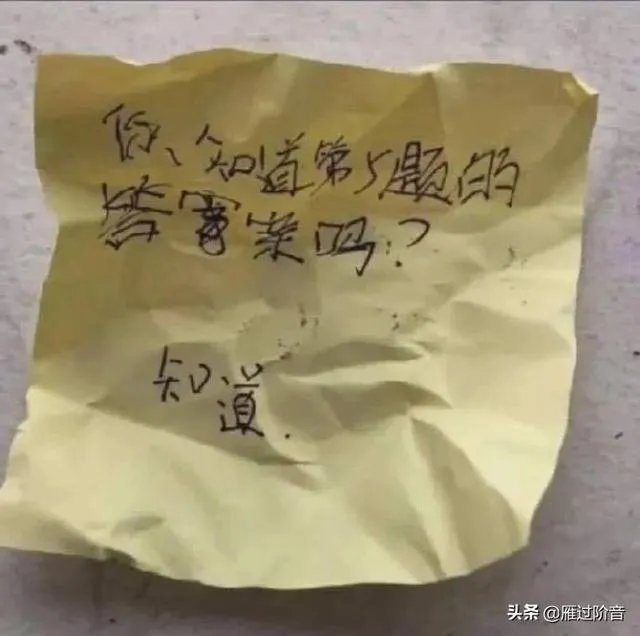 你、知道第5题的
答案吗?
知
道.
头条 @雁过阶音